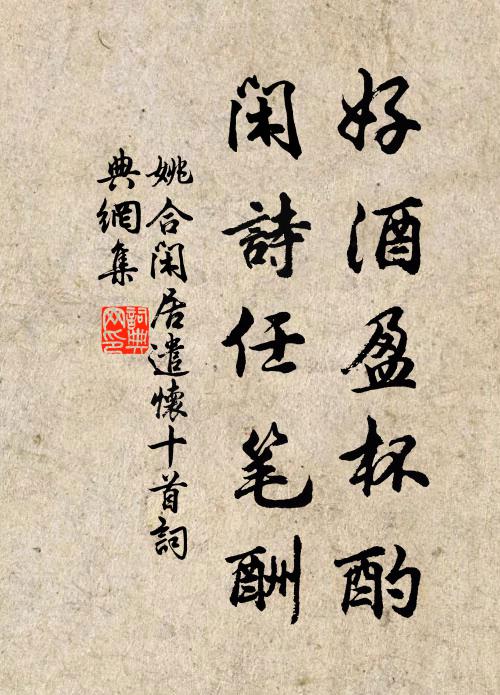 好酒盈杯酌
闲詩任笔酬
姚合闲居遣懷十首詞
典網集
詞典
网印